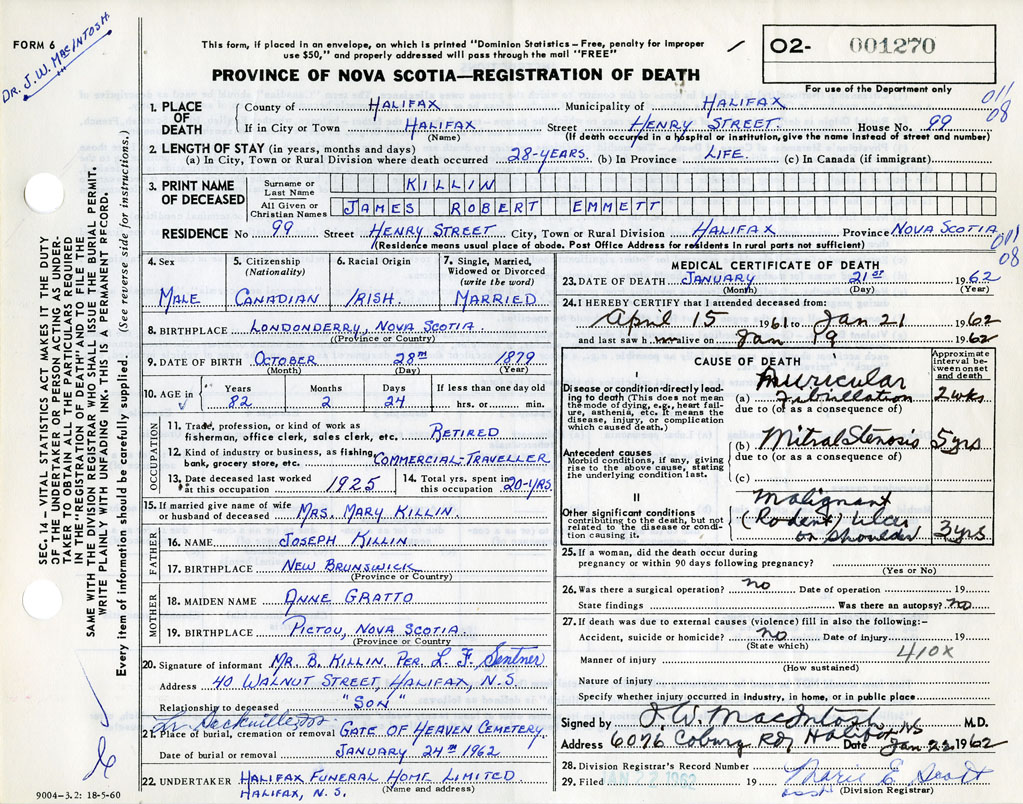 FORM 6
DR. J. W. MACINTOSH.
This form, if placed in an envelope, on which is printed "Dominion Statistics – Free, penalty for improper
use $50," and properly addressed will pass through the mail "FREE"
02- 001270
For use of the Department only
PROVINCE OF NOVA SCOTIA—REGISTRATION OF DEATH
011
08
1. PLACE OF DEATH { County of HALIFAX Municipality of HALIFAX
If in City or Town HALIFAX Street HENRY STREET House No. 99
(Name) (If death occurred in a hospital or institution, give the name instead of street and number)
2. LENGTH OF STAY (in years, months and days)
(a) In City, Town or Rural Division where death occurred 28-YEARS. (b) In Province LIFE. (c) In Canada (if immigrant)
3. PRINT NAME OF DECEASED Surname or Last Name KILLIN
All Given or Christian Names JAMES ROBERT EMMETT
RESIDENCE No 99 Street HENRY STREET City, Town or Rural Division HALIFAX Province NOVA SCOTIA
(Residence means usual place of abode. Post Office Address for residents in rural parts not sufficient)
011
08
4. Sex MALE
5. Citizenship (Nationality) CANADIAN
6. Racial Origin IRISH.
7. Single, Married, Widowed or Divorced (write the word) MARRIED
8. BIRTHPLACE LONDONDERRY, NOVA SCOTIA
(Province or Country)
9. DATE OF BIRTH OCTOBER 28TH 1879
(Month) (Day) (Year)
10. AGE in { Years 82 Months 2 Days 24 If less than one day old hrs. or min.
OCCUPATION
11. Trade, profession, or kind of work as
fisherman, office clerk, sales clerk, etc. RETIRED
12. Kind of industry or business, as fishing,
bank, grocery store, etc. COMMERCIAL-TRAVELLER
13. Date deceased last worked
at this occupation 1925
14. Total yrs. spent in
this occupation 20-YRS.
15. If married give name of wife
or husband of deceased MRS. MARY KILLIN.
FATHER
16. NAME JOSEPH KILLIN
17. BIRTHPLACE NEW BRUNSWICK
(Province or Country)
MOTHER
18. MAIDEN NAME ANNE GRATTO
19. BIRTHPLACE PICTOU, NOVA SCOTIA.
(Province or Country)
20. Signature of informant MR. B. KILLIN. PER L. F. Sentner
Address 40 WALNUT STREET, HALIFAX, N.S.
Relationship to deceased "SON"
Sackville
21. Place of burial, cremation or removal GATE OF HEAVEN CEMETERY
Date of burial or removal JANUARY 24TH 1962
22. UNDERTAKER HALIFAX FUNERAL HOME LIMITED
(Name and address)
HALIFAX, N.S.
9004-3.2: 18-5-60
MEDICAL CERTIFICATE OF DEATH
23. DATE OF DEATH JANUARY 21ST 1962
(Month) (Day) (Year)
24. I HEREBY CERTIFY that I attended deceased from:
April 15 1961 to Jan 21 1962
and last saw h im alive on Jan 19 1962
CAUSE OF DEATH
Approximate interval between onset and death
I
Disease or condition directly leading to death (This does not mean the mode of dying, e.g., heart failure, asthenia, etc. It means the disease, injury, or complication which caused death.)
(a) Auricular Fibrillation 2 wks
due to (or as a consequence of)
Antecedent causes
Morbid conditions, if any, giving rise to the above cause, stating the underlying condition last.
(b) Mitral Stenosis 5 yrs
due to (or as a consequence of)
(c)
II
Other significant conditions
contributing to the death, but not related to the disease or condition causing it.
Malignant
(Rodent) Ulcer
on shoulder 3 yrs
25. If a woman, did the death occur during
pregnancy or within 90 days following pregnancy?
(Yes or No)
26. Was there a surgical operation? no Date of operation 19
State findings Was there an autopsy? no
27. If death was due to external causes (violence) fill in also the following:-
Accident, suicide or homicide? no Date of injury 19
(State which)
410X
Manner of injury
(How sustained)
Nature of injury
Specify whether injury occurred in industry, in home, or in public place
Signed by J. W. MacIntosh M.D.
Address 6076 Coburg Rd, Halifax NS Date Jan 22 1962
28. Division Registrar's Record Number
29. Filed JAN 22 1962 19 Marie E. Scott
(Division Registrar)
SEC. 14 – VITAL STATISTICS ACT MAKES IT THE DUTY
OF THE UNDERTAKER OR PERSON ACTING AS UNDER-
TAKER TO OBTAIN ALL THE PARTICULARS REQUIRED
IN THE "REGISTRATION OF DEATH" AND TO FILE THE
SAME WITH THE DIVISION REGISTRAR WHO SHALL ISSUE THE BURIAL PERMIT.
WRITE PLAINLY WITH UNFADING INK. THIS IS A PERMANENT RECORD.
Every item of information should be carefully supplied. (See reverse side for instructions.)